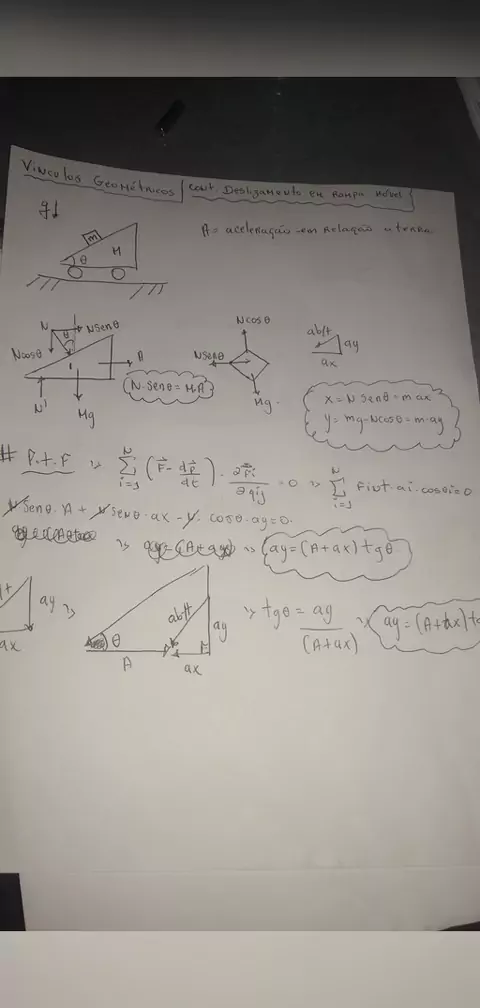 Vinculos Geométricos / cont. Deslizamento em Rampa Móvel
g↓
m
M
θ
A = aceleração em relação a terra
N
N senθ
θ
N cosθ
A
N'
Mg
N·senθ = M·A
N cosθ
N senθ
Mg
ab/t
ay
ax
x = N senθ = m·ax
y = mg - N cosθ = m·ay
# P.t.F ⇒ \sum_{i=1}^{N} (\vec{F} - \frac{d\vec{p}}{dt}) · \frac{∂\vec{r}i}{∂qij} = 0 ⇒ \sum_{i=1}^{N} Fint·ai·cosθi = 0
N senθ·A + N senθ·ax - N·cosθ·ay = 0
⇒ ay = (A + ax) tgθ
ay
ax
⇒
θ
ab/t
ay
A
ax
⇒ tgθ = \frac{ay}{(A + ax)}
ay = (A + ax) t